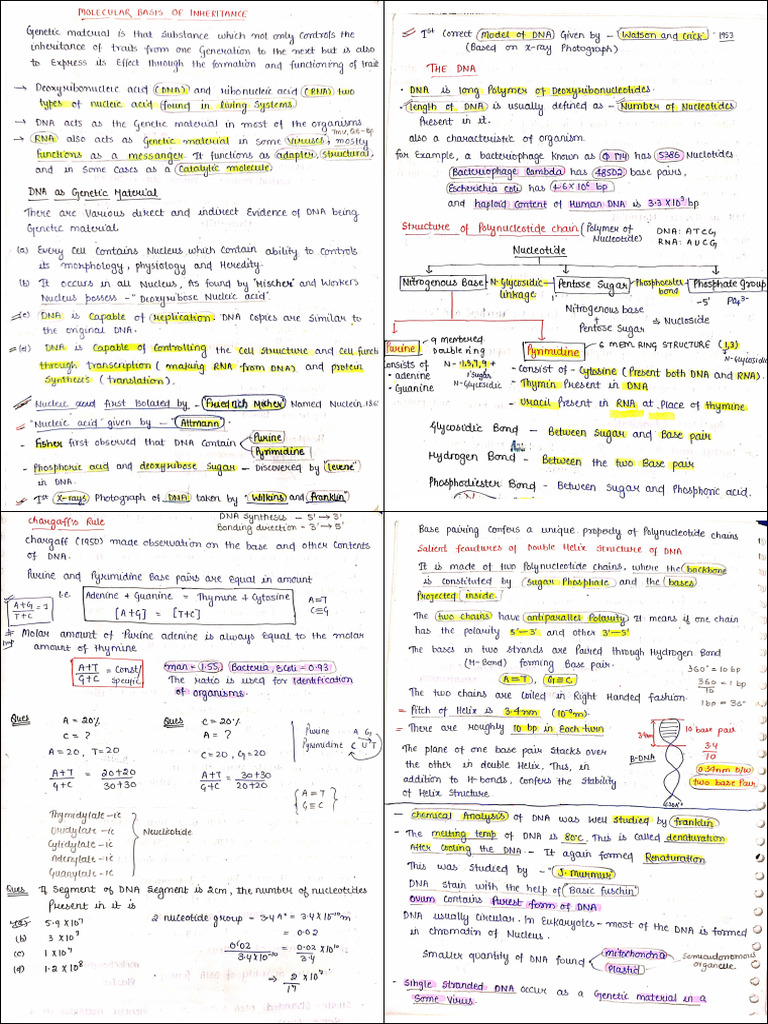 MOLECULAR BASIS OF INHERITANCE
Genetic material is that substance which not only controls the
inheritance of traits from one Generation to the next but is also
to Express its Effect through the formation and functioning of trait
→ Deoxyribonucleic acid (DNA) and ribonucleic acid (RNA) two
types of nucleic acid found in living Systems.
→ DNA acts as the Genetic material in most of the organisms
TMV, QB-Bp
→ RNA also acts as Genetic material in some Viruses, mostly
functions as a messanger. It functions as adapter, structural,
and in some Cases as a Catalytic molecule.
DNA as Genetic Material
There are Various direct and indirect Evidence of DNA being
Genetic material
(a) Every Cell contains Nucleus which contain ability to Controls
its morphology, physiology and Heredity.
(b) It occurs in all Nucleus, As found by "Mischer" and Workers
Nucleus possess - "Deoxyribose Nucleic acid".
(c) DNA is Capable of Replication. DNA copies are Similar to
the original DNA.
(d) DNA is Capable of Controlling the cell Structure and cell funct
through transcription (making RNA from DNA) and protein
Synthesis (translation).
Nucleic acid first Isolated by - "Friedrich Meher" Named Nuclein
= "Nucleic acid" given by - "Altmann".
- Fisher first observed that DNA Contain
Purine
Pyrimidine
- Phosphoric acid and deoxyribose Sugar - Discovered by "levene"
in DNA.
1st x-rays Photograph of DNA taken by "Wilkins and franklin"
1st Correct Model of DNA Given by - Watson and Crick 1953
(Based on x-ray Photograph)
THE DNA
• DNA is long Polymer of Deoxyribonucleotides.
• length of DNA is usually defined as - Number of Nucleotides
Present in it.
also a characteristic of organism.
for Example, a bacteriophage known as Φ 174 has 5386 Nuclotides
Bacteriophage lambda has 48502 base pairs,
Escherichia coli has 4.6×10⁶ bp
and haploid Content of Human DNA is 3.3×10⁹ bp
Structure of Polynucleotide chain (Polymer of
Nucleotide)
DNA: ATCG
RNA: AUCG
Nucleotide
Nitrogenous Base
N-Glycosidic
linkage
Pentose Sugar
Phosphoester
bond
Phosphate Group
-5' PO₄³⁻
Nitrogenous base
+
Pentose Sugar
⇒ Nucloside
Purine
9 membered
double ring
N - 1,3,7,9
1' sugar
N-Glycosidic
Consists of
• adenine
• Guanine
Pyrimidine
6 MEM. RING STRUCTURE (1,3)
N-Glycosidic
- Consist of - Cytosine (Present both DNA and RNA)
- Thymin Present in DNA
- Uracil Present in RNA at Place of thymine
Glycosidic Bond - Between Sugar and Base pair
Hydrogen Bond - Between the two Base pair
Phosphodiester Bond - Between Sugar and Phosphoric acid.
Chargaff's Rule
DNA Synthesis - 5' → 3'
Bonding direction - 3' → 5'
Chargaff (1950) made observation on the base and other Contents
of DNA.
Purine and Pyrimidine Base pairs are Equal in amount
i.e.
A+G/T+C = 1
Adenine + Guanine = Thymine + Cytosine
[A+G] = [T+C]
A=T
C≡G
Molar amount of Purine adenine is always Equal to the molar
amount of thymine
Imp
A+T/G+C = Const/ Specific
man = 1.55, Bacteria, E.Coli = 0.93
The ratio is used for Identification
of organisms.
Ques A = 20%
C = ?
A = 20, T = 20
A+T/G+C = 20+20/30+30
Ques C = 20%
A = ?
C = 20, G = 20
A+T/G+C = 30+30/20+20
Purine A G
Pyrimidine C U T
{A = T
G ≡ C}
Thymidylate - ic
Uridylate - ic
Cytidylate - ic
Adenylate - ic
Guanylate - ic
Nucleotide
Ques If Segment of DNA Segment is 2cm, the number of nucleotides
Present in it is
(a) 5.9 × 10⁷
(b) 3 × 10⁷
(c) 1 × 10⁷
(d) 1.2 × 10⁸
2 nucleotide group - 3.4 A° = 3.4×10⁻¹⁰m
= 0.02
0.02/3.4×10⁻¹⁰ = 0.02/3.4 × 10¹⁰
→ 2/17 × 10⁹
Base pairing confers a unique property of Polynucleotide chains
Salient feautures of Double Helix Structure of DNA
It is made of two Polynucleotide chains, where the backbone
is constituted by Sugar Phosphate and the bases
Projected inside.
The two chains have antiparallel Polarity. It means if one chain
has the polarity 5'-3' and other 3'-5'
The bases in two strands are Paired through Hydrogen Bond
(H-Bond) forming Base pair.
A=T, G≡C
360° = 10 bp
360/10 = 1 bp
1 bp = 36°
The two chains are coiled in Right Handed fashion.
= Pitch of Helix is 3.4 nm (10⁻⁹m).
= There are roughly 10 bp in Each turn
The plane of one base pair stacks over
the other in double Helix, This, in
addition to H-bonds, Confers the Stability
of Helix Structure.
B-DNA
10 base pair
3.4/10
0.34nm b/w
two base Pair
- chemical Analysis of DNA was well Studied by franklin
- The melting temp of DNA is 80°C. This is called denaturation
After Cooling the DNA - It again formed Renaturation
This was Studied by - "J. Murmur"
DNA Stain with the help of "Basic fuschin"
Ovum Contains Purest form of DNA
DNA usually Circular. In Eukaryotes - most of the DNA is formed
in chromatin of Nucleus.
Smaller quantity of DNA found
mitochondria
Plastid
Semiautonomous
organelle.
- Single Stranded DNA occur as a Genetic material in a
Some Virus.